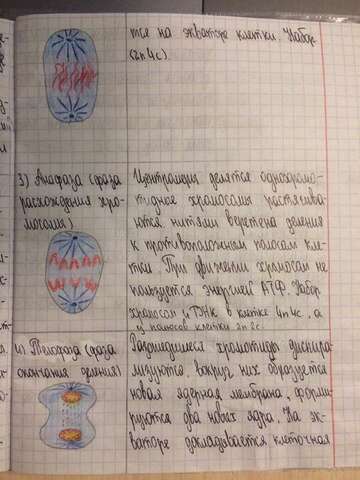 тся на экваторе клетки. Набор
(2n4c).
3) Анафаза (фаза
расхождения хро-
мосом)
Центромеры делятся однохрома-
тидные хромосомы растягива-
ются нитями веретена деления
к противоположным полюсам кле-
тки. При движении хромосом ис
пользуется энергией АТФ. Набор
хромосом и ДНК в клетке 4n4c, а
у полюсов клетки 2n2c.
4) Телофаза (фаза
окончания деления)
Разошедшиеся хроматиды деспира-
лизуются, вокруг них образуется
новая ядерная мембрана, форми-
руются два новых ядра. На эк-
ваторе закладывается клеточная